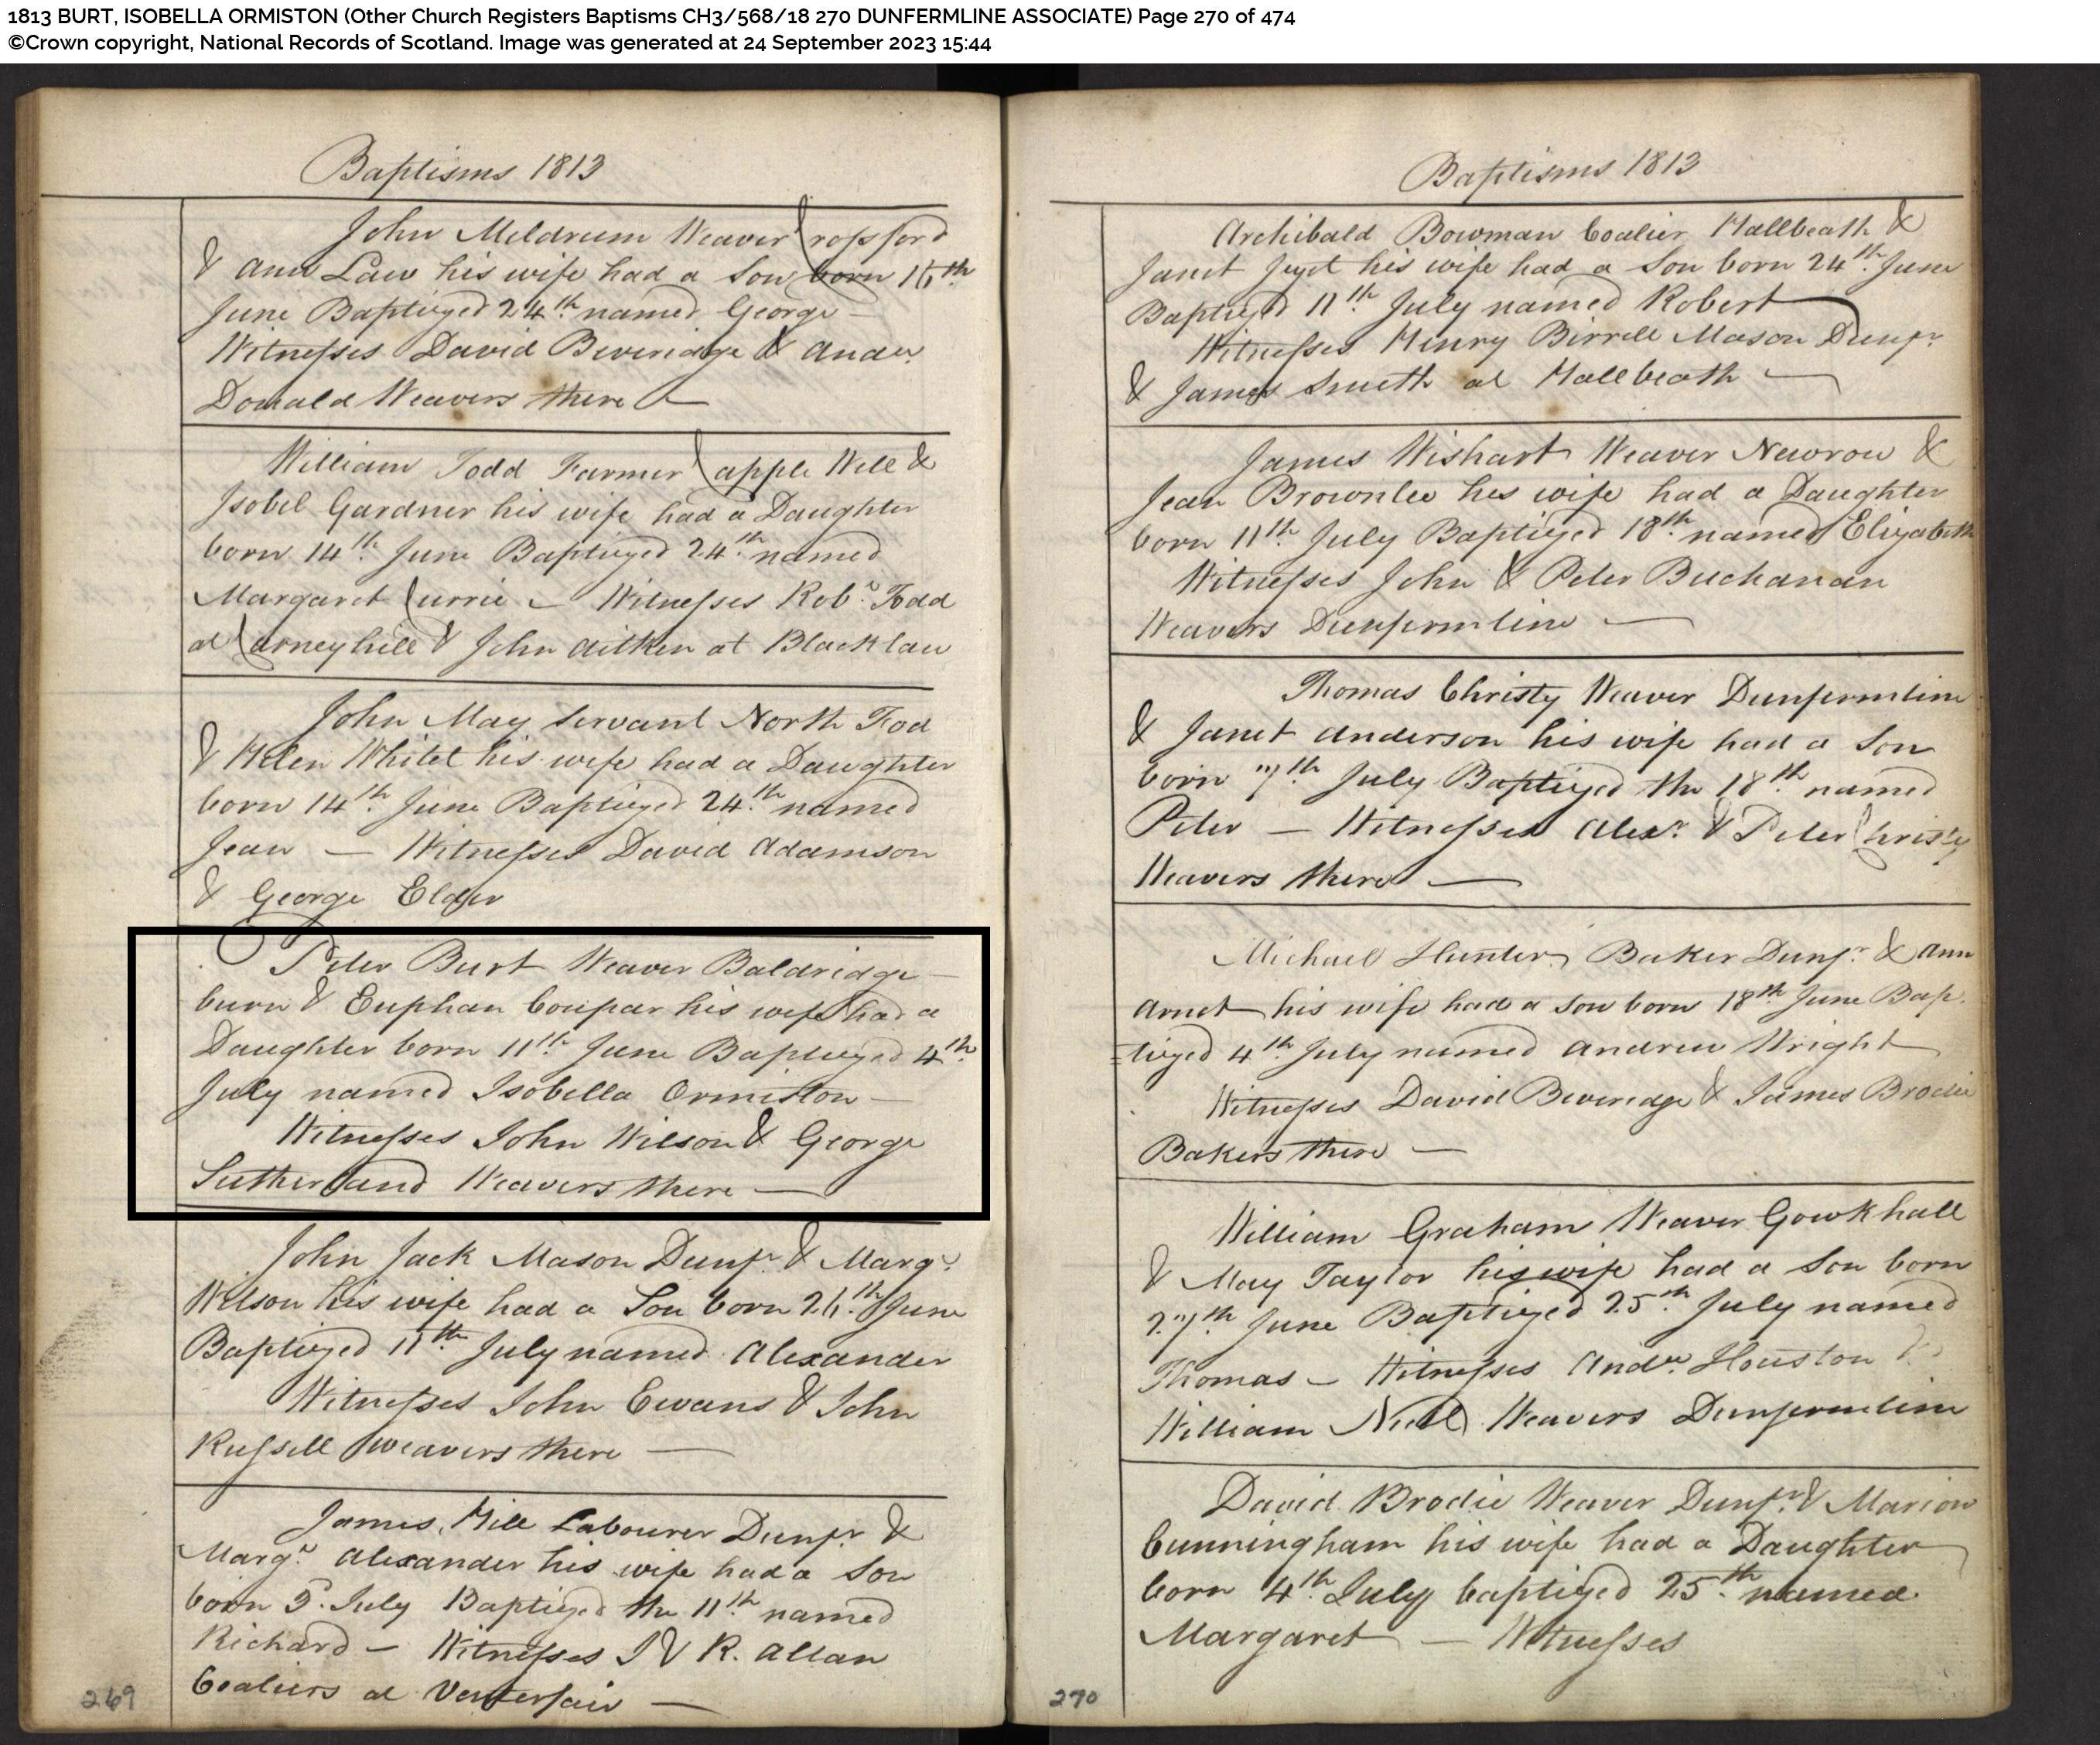 1813 BURT, ISOBELLA ORMISTON (Other Church Registers Baptisms CH3/568/18 270 DUNFERMLINE ASSOCIATE) Page 270 of 474
©Crown copyright, National Records of Scotland. Image was generated at 24 September 2023 15:44
Baptisms 1813
John Meldrum Weaver Crossford
& Ann Law his wife had a Son born 16th
June Baptized 24th named George
Witnesses David Beveridge & Andw
Donald Weavers there —
William Todd Farmer Capple Well &
Isobel Gardner his wife had a Daughter
born 14th June Baptized 24th named
Margaret Currie — Witnesses Robt Todd
at Carneyhill & John Aitken at Blacklaw
John May Servant North Fod
& Helen Whitet his wife had a Daughter
born 14th June Baptized 24th named
Jean — Witnesses David Adamson
& George Elder
Peter Burt Weaver Baldridge
burn & Euphan Coupar his wife had a
Daughter born 11th June Baptized 4th
July named Isobella Ormiston —
Witnesses John Wilson & George
Sutherland Weavers there —
John Jack Mason Dunfr & Margt
Wilson his wife had a Son born 26th June
Baptized 11th July named Alexander
Witnesses John Ewans & John
Russell Weavers there —
James Mill Labourer Dunfr &
Margt Alexander his wife had a Son
born 5 July Baptized the 11th named
Richard — Witnesses J & R. Allan
Coaliers at Venterfair —
269
Baptisms 1813
Archibald Bowman Coalier Hallbeath &
Janet his wife had a Son born 24th June
Baptized 11th July named Robert
Witnesses Henry Birrell Mason Dunfr
& James Smith at Hallbeath —
James Wishart Weaver Newrow &
Jean Brownlee his wife had a Daughter
born 11th July Baptized 18th named Elizabeth
Witnesses John & Peter Buchanan
Weavers Dunfermline —
Thomas Christy Weaver Dunfermline
& Janet Anderson his wife had a Son
born 7th July Baptized the 18th named
Peter — Witnesses Alexr & Peter Christy
Weavers there —
Michael Hunter Baker Dunfr & Ann
Arnet his wife had a Son born 18th June Bap
=tized 4th July named Andrew Wright
Witnesses David Beveridge & James Brodie
Bakers there —
William Graham Weaver Gowkhall
& May Taylor his wife had a Son born
27th June Baptized 25th July named
Thomas — Witnesses Andw Houston &
William Niell Weavers Dunfermline
David Brodie Weaver Dunfr & Marion
Cunningham his wife had a Daughter
born 4th July baptized 25th named
Margaret — Witnesses
270